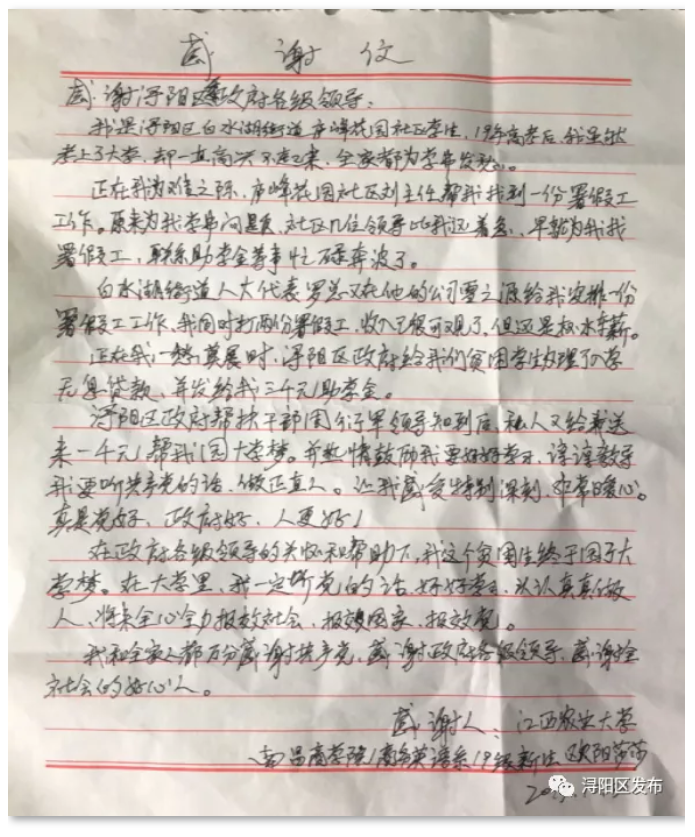 感 谢 信
感谢浔阳区政府各级领导:
我是浔阳区白水湖街道庐峰花园社区学生,19年高考后,我虽然
考上了大学,却一直高兴不起来,全家都为学费发愁。
正在我为难之际,庐峰花园社区刘主任帮我找到一份署假工
工作。原来为我学费问题,社区几位领导比我还着急,早就为我找
署假工,联系助学金等事忙碌奔波了。
白水湖街道人大代表罗总又在他的公司给我安排一份
署假工工作,我同时打两份署假工,收入已很可观了,但还是杯水车薪。
正在我一愁莫展时,浔阳区政府给我们贫困学生办理了入学
无息贷款,并发给我三千元助学金。
浔阳区政府帮扶干部周领导知到后,私人又给我送
来一千元,帮我们园大学梦。并热情鼓励我要好好学习,谆谆教导
我要听共产党的话,做正直人。让我感受特别深刻,非常暖心。
真是党好,政府好,人更好!
在政府各级领导的关怀和帮助下,我这个贫困生终于园了大
学梦。在大学里,我一定听党的话,好好学习,认认真真做
人,将来全心全力报效社会,报效国家,报效党。
我和全家人都万分感谢共产党,感谢政府各级领导,感谢全
社会的好心人。
感谢人:江西农业大学
南昌商学院/商务英语系19级新生 欧阳莎莎
浔阳区发布